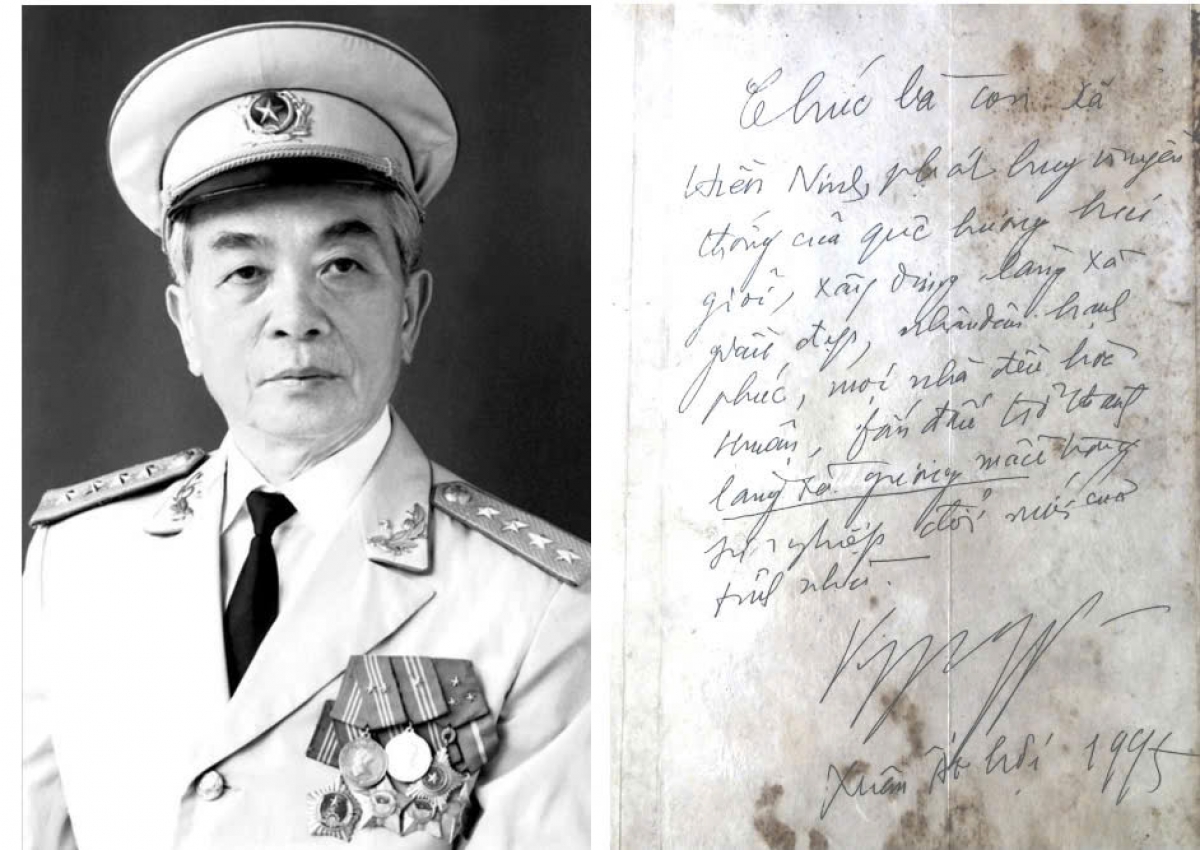 Chúc bà con xã
Hiền Ninh, phát huy truyền
thống của quê hương
giỏi, xây dựng làng xã
giàu đẹp, nhân dân hạnh
phúc, mọi nhà đều hòa
thuận, phấn đấu trở thành
làng xã gương mẫu trong
sự nghiệp đổi mới của
tỉnh nhà.
Xuân Ất hợi 1995